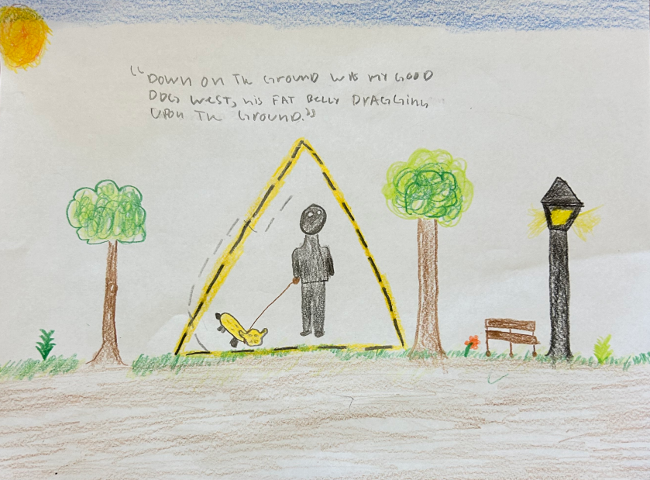 "DOWN ON THE GROUND WAS MY GOOD
DOG WEST, HIS FAT BELLY DRAGGING
UPON THE GROUND."